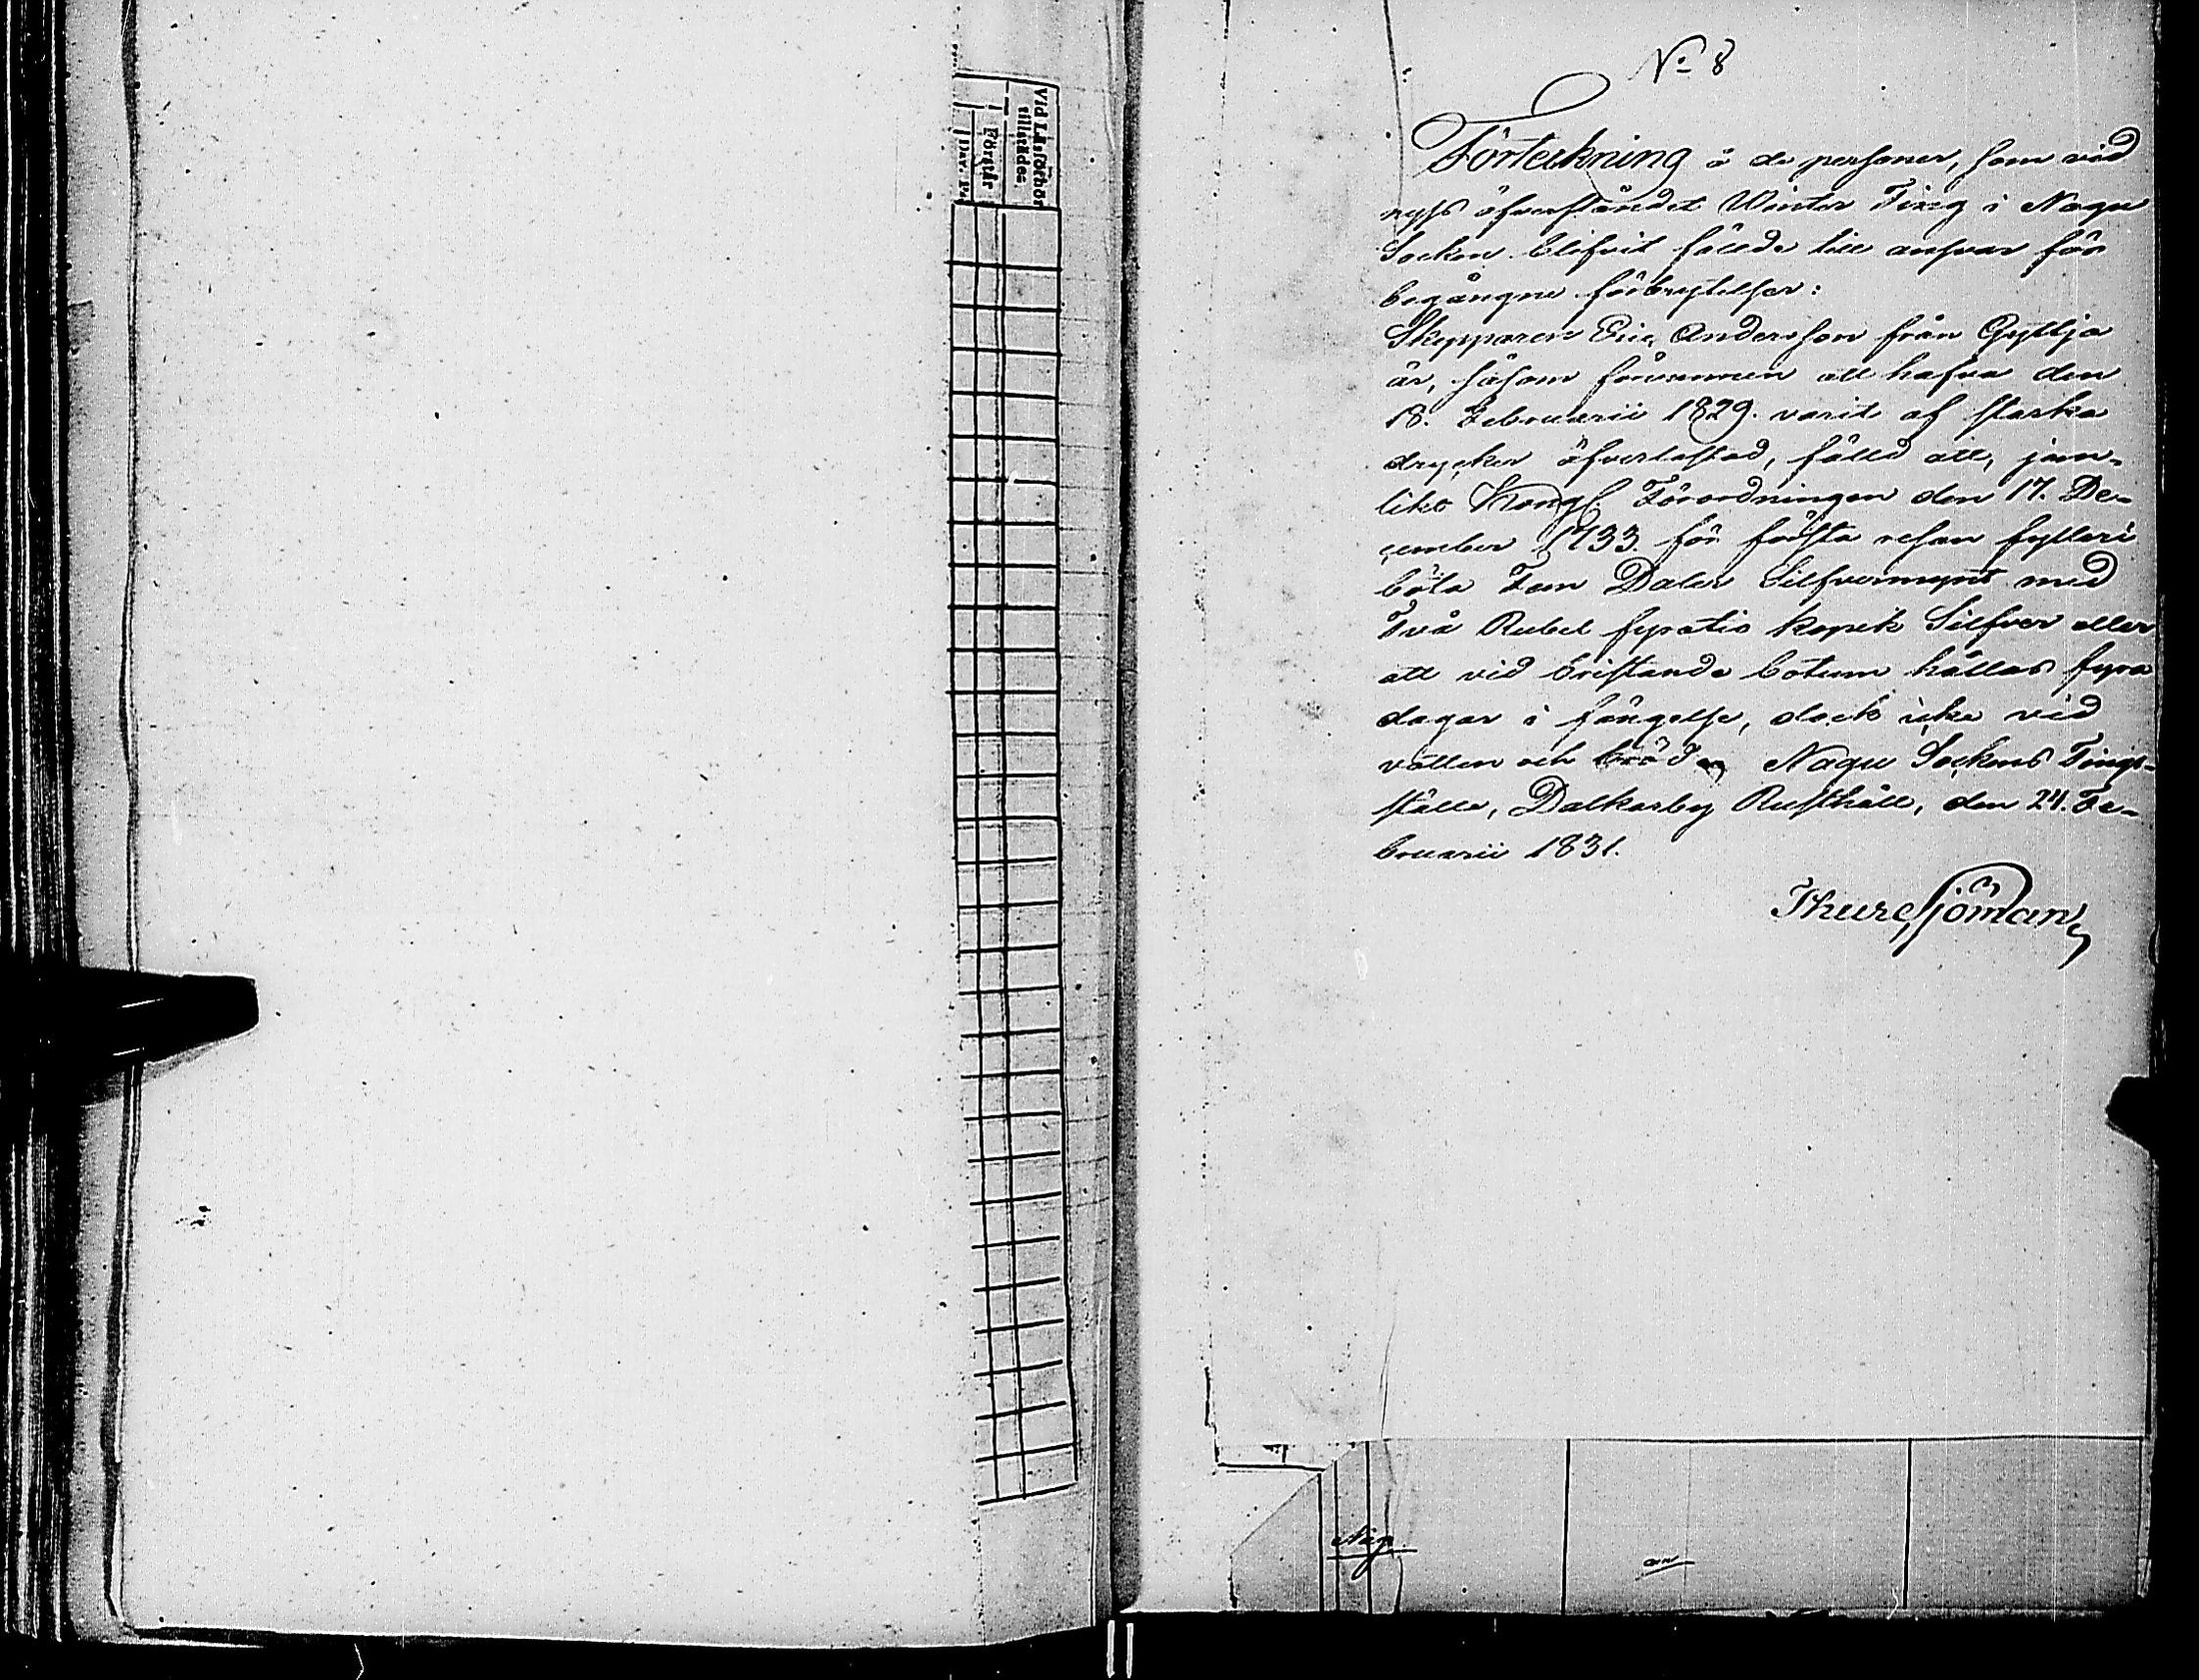 Vid Läsförhör
tillstädes.
Förstår
Dav. Ps
No 8
Förteckning å de personer, som vid
nyss öfverståndet Winter Ting i Nagu
Socken blifvit fällde till ansvar för
begångne förbrytelser:
Skepparen Eric Andersson från Gyttja
är, såsom förvunnen att hafva den
18. Februarii 1829. varit af starka
drycker öfverlastad, fälld att, jem-
likt Kongl. Förordningen den 17. De-
cember 1733. för första resan fylleri
böta Fem Daler Silfvermynt med
Två Rubel fyratio kopek Silfver eller
att vid bristande botum hållas fyra
dagar i fängelse, dock icke vid
vatten och bröd. Nagu Sockens Tings-
ställe, Dalkarby Rusthåll, den 24. Fe-
bruarii 1831.
Thure Sjöman